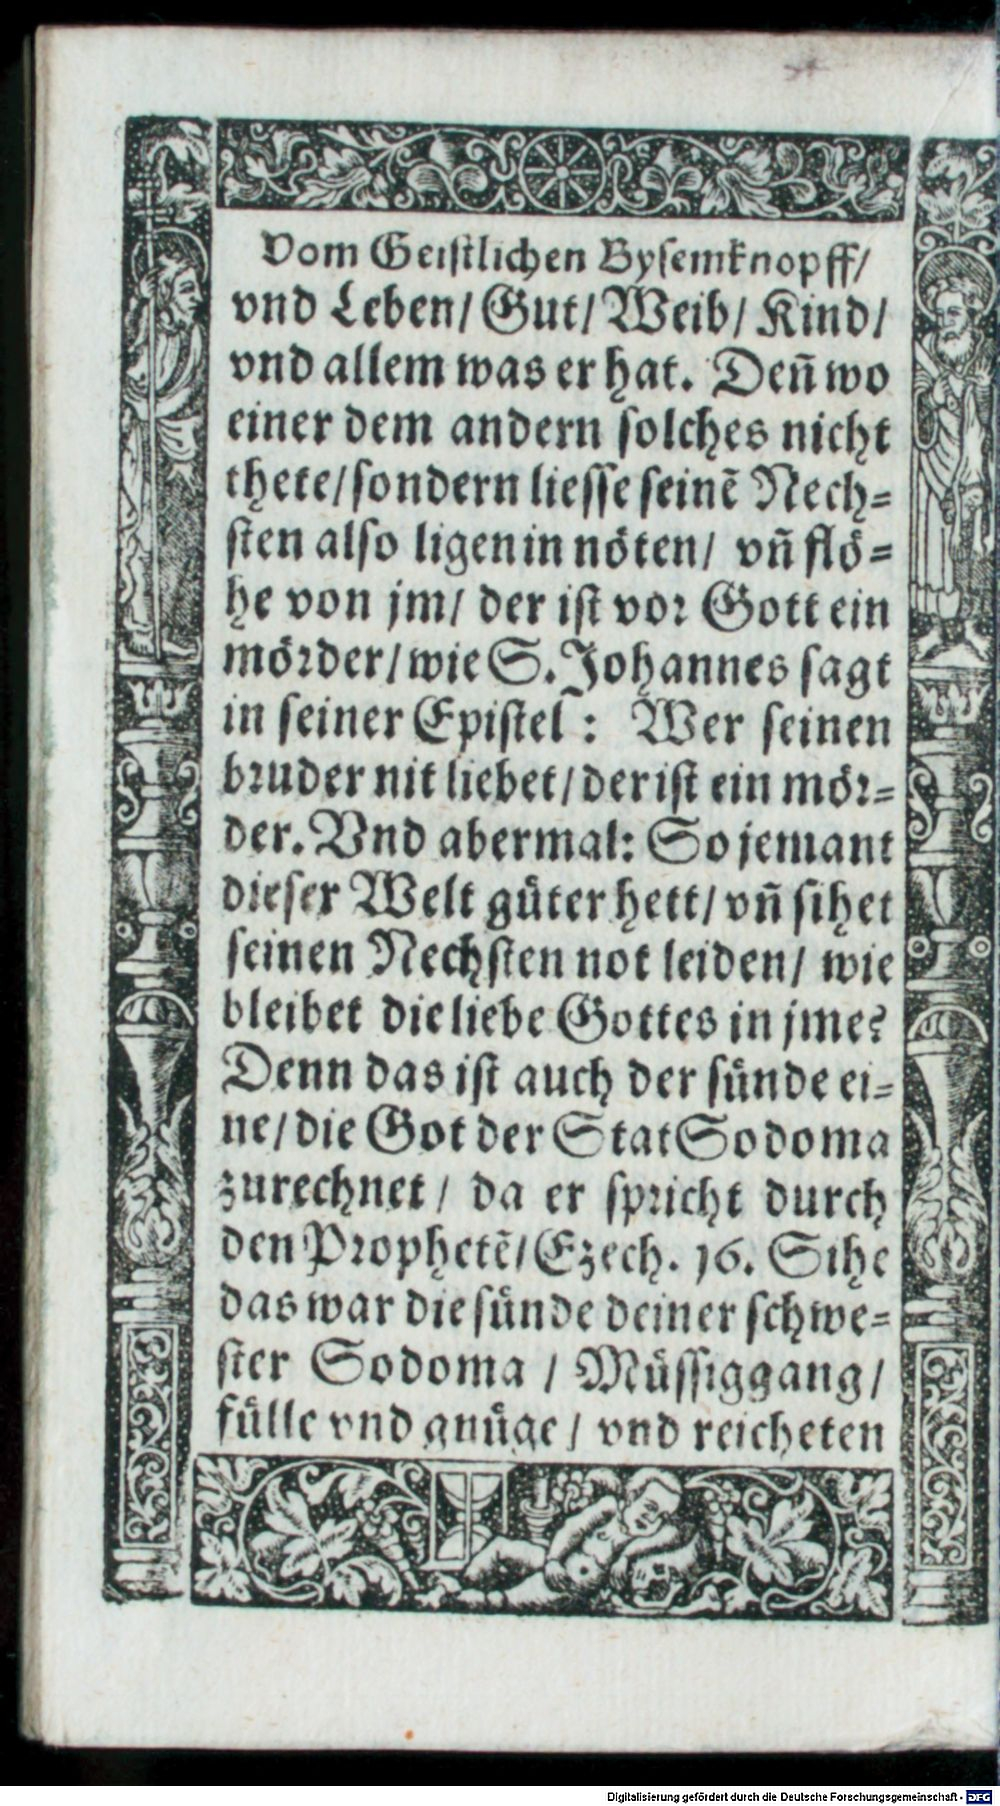 Vom Geistlichen Bysemknopff/
vnd Leben/ Gut/ Weib/ Kind/
vnd allem was er hat. Deñ wo
einer dem andern solches nicht
thete/ sondern liesse seinẽ Nech=
sten also ligen in nöten/ vñ flö=
he von jm/ der ist vor Gott ein
mörder/ wie S. Johannes sagt
in seiner Epistel: Wer seinen
bruder nit liebet/ der ist ein mör=
der. Vnd abermal: So jemant
dieser Welt güter hett/ vñ sihet
seinen Nechsten not leiden/ wie
bleibet die liebe Gottes in jme?
Denn das ist auch der sünde ei=
ne/ die Got der Stat Sodoma
zurechnet/ da er spricht durch
den Prophetẽ/ Ezech. 16. Sihe
das war die sünde deiner schwe=
ster Sodoma / Müssiggang/
fülle vnd gnüge/ vnd reicheten
Digitalisierung gefördert durch die Deutsche Forschungsgemeinschaft - DFG